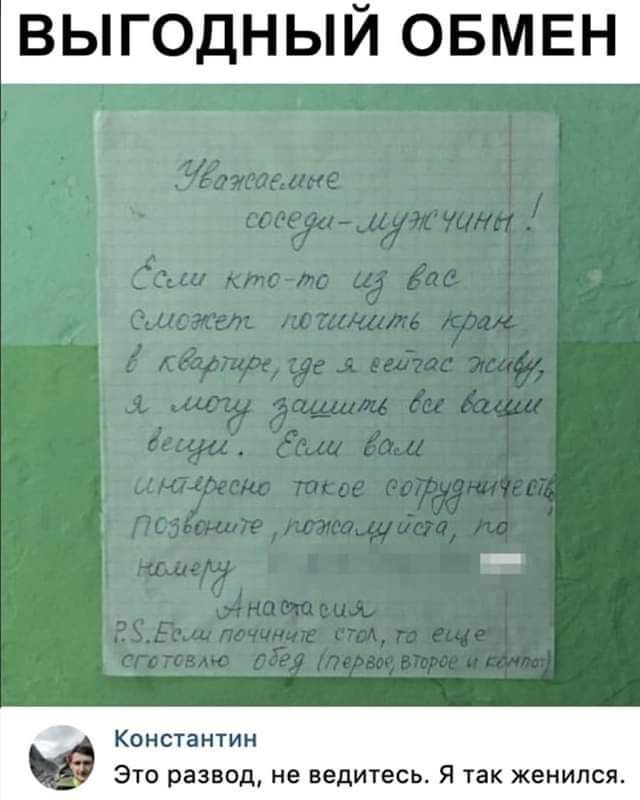 ВЫГОДНЫЙ ОБМЕН
Уважаемые
соседи-мужчины!
Если кто-то из вас
сможет починить кран
в квартире, где я сейчас живу,
я могу зашить все ваши
вещи. Если вам
интересно такое сотрудничеств
позвоните, пожалуйста, по
номеру
Анастасия
P.S. Если почините стол, то еще
сготовлю обед (первое, второе и компот)
Константин
Это развод, не ведитесь. Я так женился.